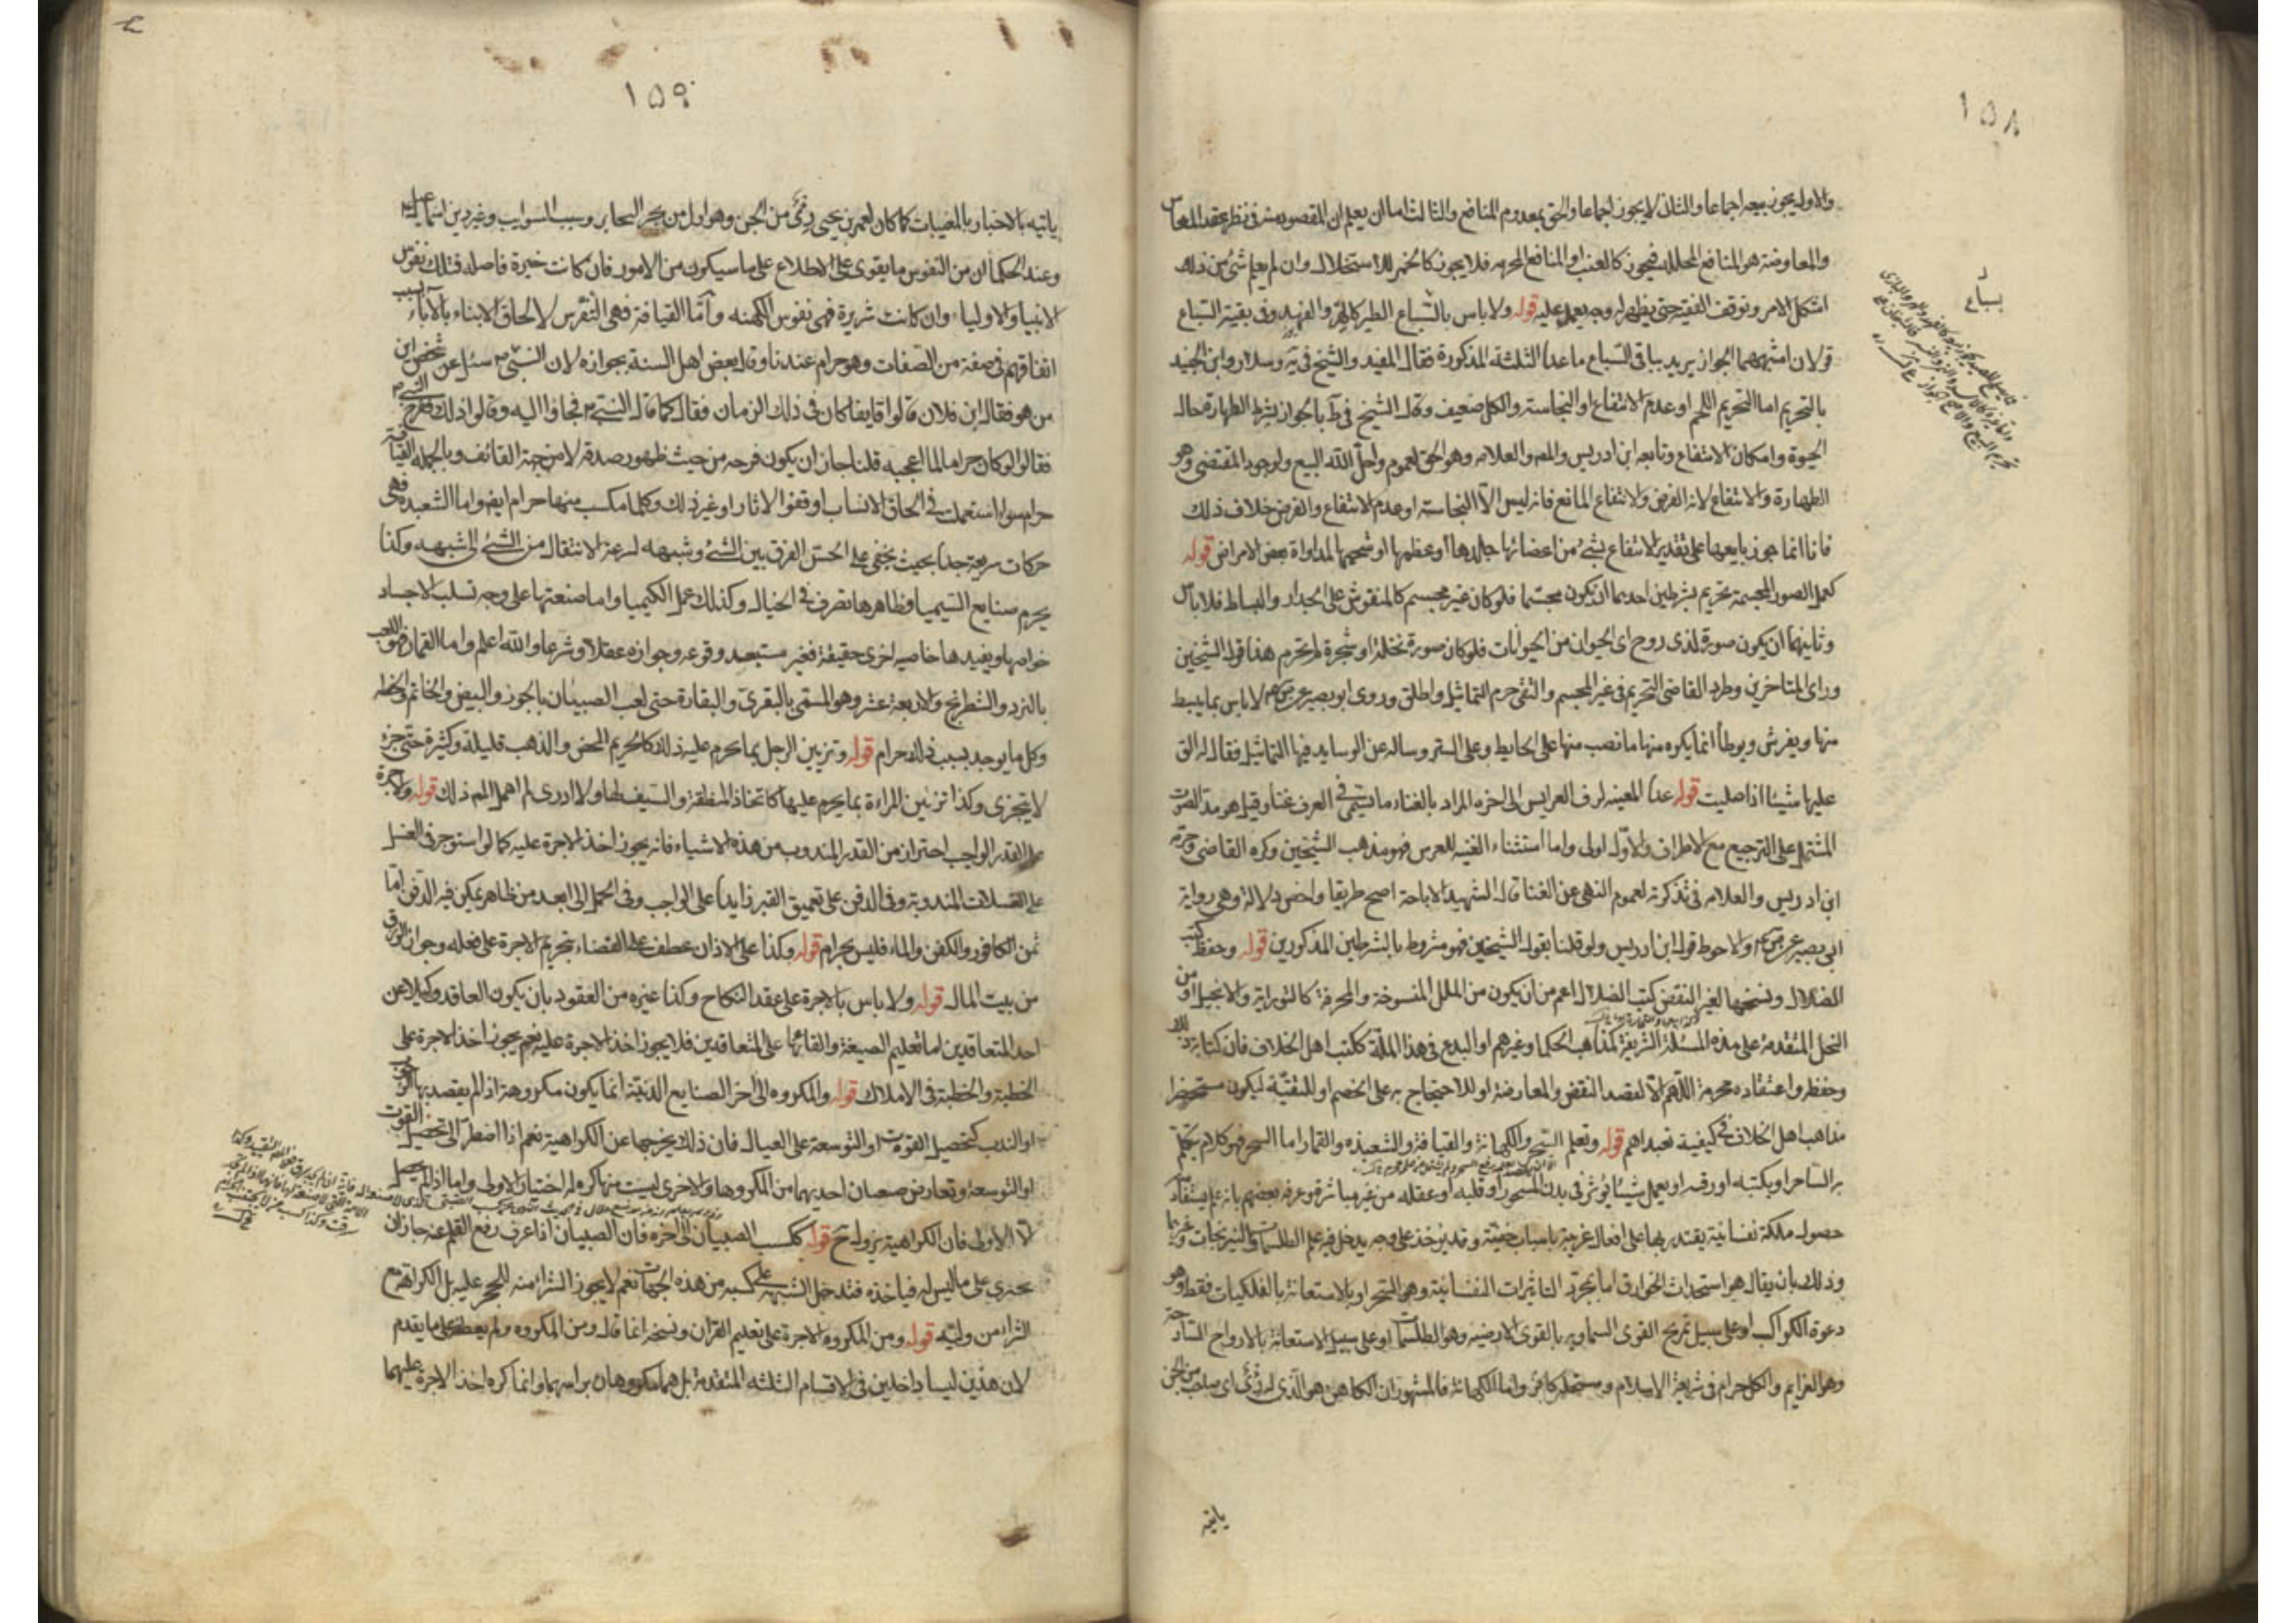 ١٥٨
والاول يجوز بيعه اجماعا والثانى لا يجوز اجماعا والحق بمعدوم المنافع والثالث اما ان يعلم ان المقصود منه فى نظر عقد المعاش
والمعاوضة هو المنافع المحللة فيجوز كالعنب او المنافع المحرمه فلا يجوز كالخمر للاستحلال وان لم يعلم شئ من ذلك
اشكل الامر وتوقف الفقيه حتى يظهر له وجه يعمل عليه قوله ولا باس بالسباع الطير كالهر والفهد وفى بقية السباع
قولان اشبههما الجواز يريد بباقى السباع ما عدا الثلثة المذكورة فقال المفيد والشيخ فى يه وسلار وابن الجنيد
بالتحريم اما التحريم اللحم او عدم الانتفاع او النجاسة والكل ضعيف وقال الشيخ فى ط بالجواز بشرط الطهارة حال
الحيوة وامكان الانتفاع وتابعه ابن ادريس والمص والعلامه وهو الحق لعموم واحل الله البيع ولوجود المقتضى وهو
الطهارة والانتفاع لانه الفرض ولانتفاع المانع فانه ليس الا النجاسة او عدم الانتفاع والفرض خلاف ذلك
فانا انما جوزنا بيعها على تقدير الانتفاع بشئ من اعضائها جلدها او عظمها او شحمها لمداواة بعض الامراض قوله
كعمل الصور المجسمة تحريم بشرطين احدهما ان يكون مجسما فلو كان غير مجسم كالمنقوش على الجدار والبساط فلا باس
وثانيهما ان يكون صورة لذى روح اى الحيوان من الحيوانات فلو كان صورة نخلة او شجرة لم تحرم هذا قول الشيخين
وراى المتاخرين وطرد القاضى التحريم فى غير المجسم والتقى حرم التماثيل واطلق وروى ابو بصير عن ص ع لا باس بما يبسط
منها ويفرش ويوطأ انما يكره منها ما نصب منها على الحايط وعلى الستر وساله عن الوسايد فيها التماثيل فقال له الق
عليها شيئا اذا صليت قوله عدا المغنيه لزف العرايس الى اخره المراد بالغناء ما يسمى فى العرف غناء وقيل هو مد الصوت
المشتمل على الترجيع مع الاطراف والاول اولى واما استثناء الغنيه للعرس فهو مذهب الشيخين وكره القاضى وحرمه
ابن ادريس والعلامه فى تذكرته لعموم النهى عن الغنا قال الشهيد الاباحة اصح طريقا واخص دلالة وهى رواية
ابى بصير عن ص ع والاحوط قول ابن ادريس ولو قلنا بقول الشيخين فهو مشروط بالشرطين المذكورين قوله وحفظ كتب
الضلال ونسخها لغير النقض كتب الضلال اعم من ان يكون من الملل المنسوخة والمحرفة كالتورية والانجيل او من
النحل المتقدمة على هذه المسئلة الشريفة كمذاهب الحكما وغيرهم او البدع فى هذا الملة ككتب اهل الخلاف فان كتابة ذلك
وحفظه واعتقاده محرمة اللهم الا لقصد النقض والمعارضة او للاحتجاج به على الخصم او للتقيّة ليكون مستحضرا
مذاهب اهل الخلاف فى كيفية تعبداهم قوله وتعلم السحر والكهانة والقيافة والشعبذه والقمار اما السحر فهو كلام يتكلم
به الساحر او يكتبه او رقيه او يعمل شيئا يوثر فى بدن المسحور او قلبه او عقله من غير مباشرة وعرفه بعضهم بانه علم يستفاد منه
حصول ملكة نفسانية يقتدر بها على افعال غريبة باسباب خفيّة وقد يؤخذ على وجه يدخل فيه علم الطلسمات والنيرنجات وغيرها
وذلك بان يقال هو استحداث الخوارق اما بمجرد التاثيرات النفسانية وهو السحر او بالاستعانة بالفلكيات فقط وهو
دعوة الكواكب او على سبيل تمزيج القوى السماويه بالقوى الارضيه وهو الطلسمات او على سبيل الاستعانة بالارواح الساذجة
وهو العزايم والكل حرام فى شريعة الاسلام ومستحله كافر واما الكهانة فالمشهور ان الكاهن هو الذى له رئى اى صاحب من الجن
بسباع
ياتيه
١٥٩
ياتيه بالاخبار بالمغيبات كما كان لعمر بن يحيى رئى من الجن وهو اول من بحر البحاير وسيب السوايب وغير دين اسماعيل ع
وعند الحكما ان من النفوس ما يقوى على الاطلاع على ما سيكون من الامور فان كانت خيرة فاصله فتلك نفوس
الانبياء والاولياء وان كانت شريرة فهى نفوس الكهنه وامّا القيافة فهى التفرس لالحاق الابناء بالآباء بسبب
اتفاقهم فى صفة من الصفات وهو حرام عندنا وقال بعض اهل السنة بجوازه لان النبى ص سئل عن شخص ابن
من هو فقال ابن فلان قالوا قايفا كان فى ذلك الزمان فقال كما قال النبى ص فجاؤا اليه وقالوا ذلك ففرح النبى ص
فقالوا لو كان حراما لما اعجبه قلنا جاز ان يكون فرحه من حيث ظهور صدقه لا من جهة القائف وبالجمله القيافة
حرام سوا استعملت فى الحاق الانساب او قفو الاثار او غير ذلك وكلما مكسب منها حرام ايضا واما الشعبده فهى
حركات سريعة جدا بحيث يخفى على الحس الفرق بين الشئ وشبهه لسرعة الانتقال من الشئ الى شبهه وكذا
يحرم صنايع السيميا وظاهرها تصرف فى الخيال وكذلك عمل الكيميا واما صنعتها على وجه تسلب الاجساد
خواصها ويفيدها خاصيه اخرى حقيقة فغير مستبعد وقوعه وجوازه عقلا وشرعا والله اعلم واما القمار فهو اللعب
بالنرد والشطرنج والاربعة عشر وهو المسمى بالبقرى والبقارة حتى لعب الصبيان بالجوز والبيض والخاتم والخط
وكل ما يوجد بسبب ذلك حرام قوله وتزيين الرجل بما يحرم عليه ذلك كالحرير المحض والذهب قليله وكثيره حتى جزء
لا يتجزى وكذا تزيين المراءة بما يحرم عليها كاتخاذ المنطقة والسيف لها ولا ادرى لم اهمل المص ذلك قوله والاجرة
على القدر الواجب احتراز من القدر المندوب من هذه الاشياء فانه يجوز اخذ الاجرة عليه كما لو استوجر فى الغسل
على الغسلات المندوبة وفى الدفن على تعميق القبر زايدا على الواجب وفى الحمل الى ابعد من ظاهر يمكن فيه الدفن امّا
ثمن الكافور والكفن والماء فليس بحرام قوله وكذا على الاذان عطف على القضاء بتحريم الاجرة على فعله وجواز الرزق
من بيت المال قوله ولا باس بالاجرة على عقد النكاح وكذا غيره من العقود بان يكون العاقد وكيلا عن
احد المتعاقدين اما تعليم الصيغة والقائها على المتعاقدين فلا يجوز اخذ الاجرة عليه نعم يجوز اخذ الاجرة على
الخطبة والخطبة فى الاملاك قوله والمكروه الى اخر الصنايع الدنيّة انما يكون مكروهة اذا لم يقصد بها الوجوب
او الندب كتحصيل القوت او التوسعة على العيال فان ذلك يخرجها عن الكراهية نعم اذا اضطر الى تحصيل القوت
او التوسعة وتعارض صنعتان احديهما من المكروها والاخرى ليست منها كره له اختيار الاولى واما اذا لم يحصل
الا الاولى فان الكراهية يزول ح قوله ككسب الصبيان الى اخره فان الصبيان اذا عرف رفع القلم عنه جاز ان
يجترى على ما ليس له فياخذه فتدخل الشبهه على كسبه من هذه الجهات نعم لا يجوز الشراء منه للحجر عليه بل الكراهة مع
الشراء من وليّه قوله ومن المكروه الاجرة على تعليم القران ونسخه انما قال ومن المكروه ولم يعطف على ما يقدم
لان هذين ليسا داخلين فى الاقسام الثلثه المتقدمة بل هما مكروهان براسهما وانما كره اخذ الاجرة عليهما